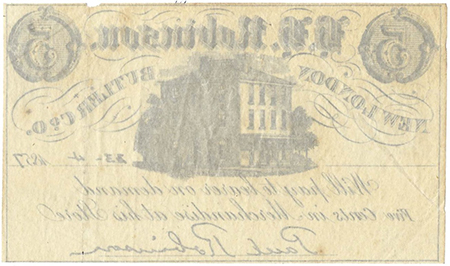 5 Robinson. 5
NEW LONDON BUTLER CO. O.
Will pay to bearer on demand
Five Cents in Merchandise at his Store
Paul Robinson